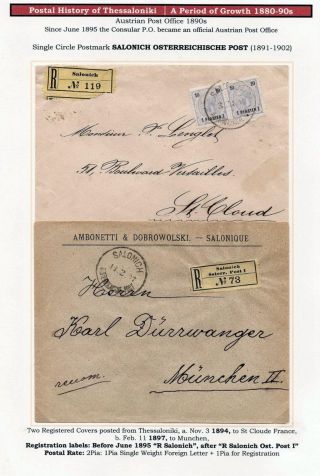 Postal History of Thessaloniki | A Period of Growth 1880-90s
Austrian Post Office 1890s
Since June 1895 the Consular P.O. became an official Austrian Post Office
Single Circle Postmark SALONICH OSTERREICHISCHE POST (1891-1902)
R
Salonich
№ 119
1 PIASTER 1
1 PIASTER 1
Monsieur
51, Boulevard Versailles.
St. Cloud
AMBONETTI & DOBROWOLSKI. — SALONIQUE
SALONICH
R
Salonich
Österr. Post I
№ 73
Herrn
Karl Dürrwanger
recom.
München II.
Two Registered Covers posted from Thessaloniki, a. Nov. 3 1894, to St Cloude France,
b. Feb. 11 1897, to Munchen,
Registration labels: Before June 1895 "R Salonich", after "R Salonich Ost. Post I"
Postal Rate: 2Pia: 1Pia Single Weight Foreign Letter + 1Pia for Registration